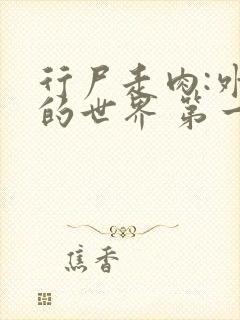 行尸走肉:外
的世界 第一
焦香